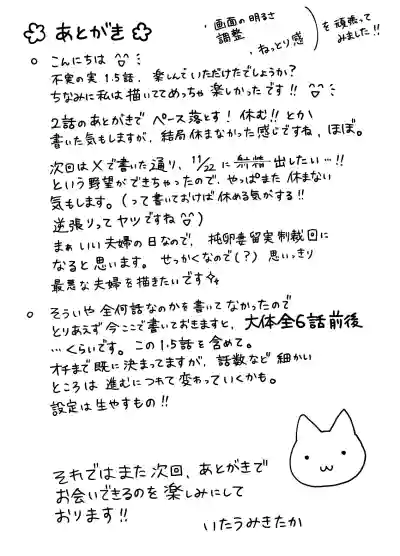 あとがき
・画面の明るさ
調整
・ねっとり感
を頑張って
みました!!
○ こんにちは
不実の実1.5話、楽しんでいただけたでしょうか?
ちなみに私は描いててめっちゃ楽しかったです!!
2話のあとがきでペース落とす!休む!!とか
書いた気もしますが、結局休まなかった感じですね、ほぼ。
次回はXで書いた通り、11/22に射精出したい…!!
という野望ができちゃったので、やっぱまた休まない
気もします。(って書いておけば休める気がする!!
逆張りってヤツですね)
まぁいい夫婦の日なので、托卵妻留実制裁回に
なると思います。せっかくなので(?)思いっきり
最悪な夫婦を描きたいです
○ そういや全何話なのかを書いてなかったので
とりあえず今ここで書いておきますと、大体全6話前後
…くらいです。この1.5話を含めて。
オチまで既に決まってますが、話数など細かい
ところは進むにつれて変わっていくかも。
設定は生やすもの!!
それではまた次回、あとがきで
お会いできるのを楽しみにして
おります!!
いたうみきたか